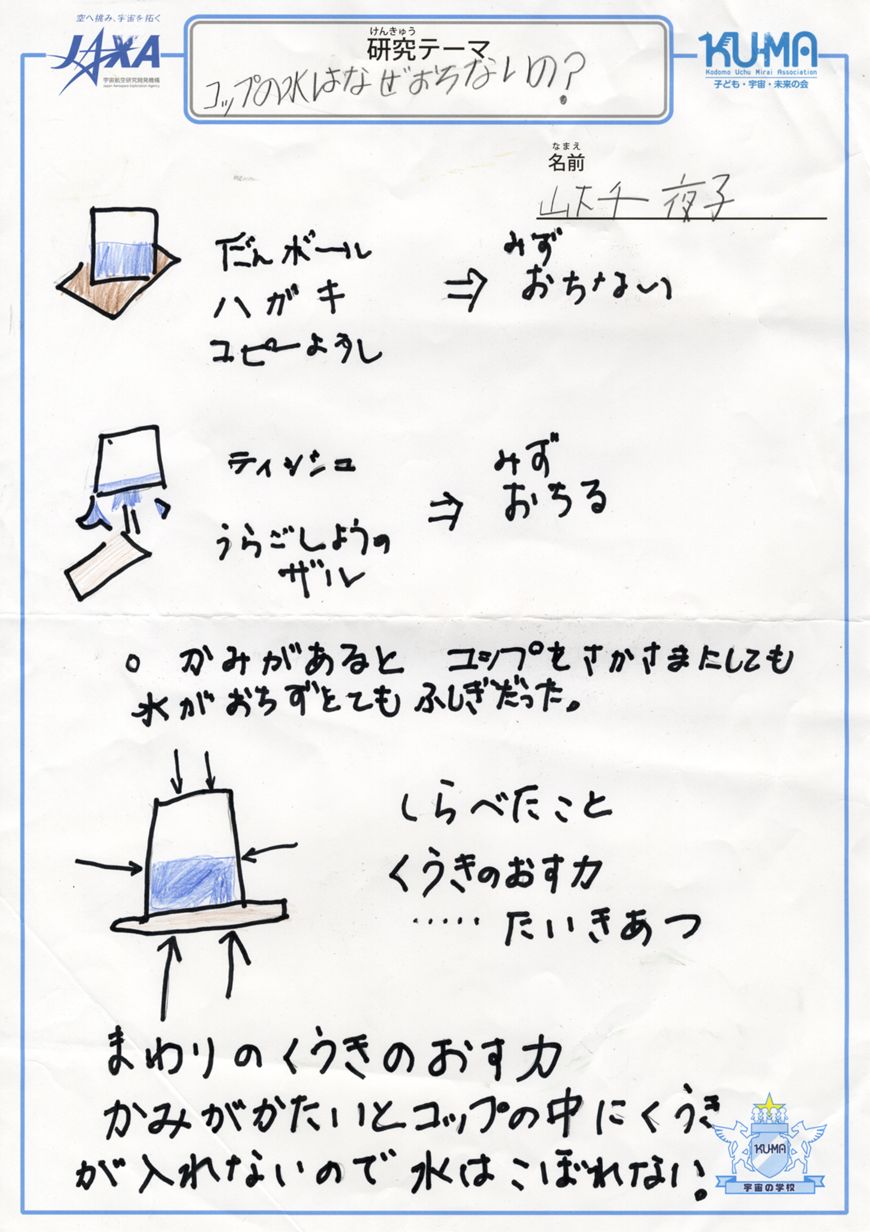 空へ挑み、宇宙を拓く
JAXA
宇宙航空研究開発機構
Japan Aerospace Exploration Agency
けんきゅう
研究テーマ
コップの水はなぜおちないの?
KU-MA
Kodomo Uchu Mirai Association
子ども・宇宙・未来の会
なまえ
名前
千夜子
だんボール
ハガキ
コピーようし
⇒
みず
おちない
ティシシュ
うらごしようの
ザル
⇒
みず
おちる
○ かみがあると コップをさかさまにしても
水がおちずとてもふしぎだった。
しらべたこと
くうきのおす力
‥‥‥たいきあつ
まわりのくうきのおす力
かみがかたいとコップの中にくうき
が入れないので水はこぼれない。
KU-MA
宇宙の学校